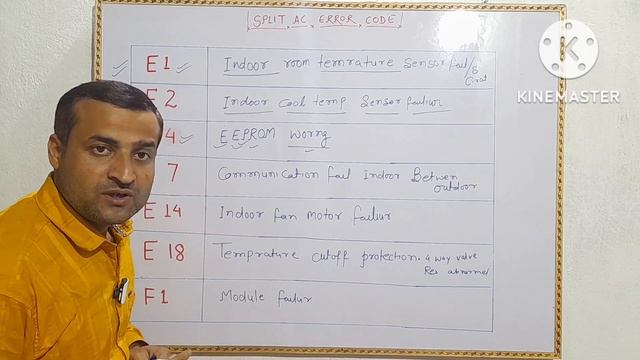 SPLIT AC ERROR CODE
E1 Indoor room temrature Sensor fail/s
Cirat
E2 Indoor Cool temp Sensor failiur
4 EEPROM Worng
7 Communication fail Indoor Betwen
outdoor
E 14 Indoor fan motor failiur
E 18 Temprature cutoff protection. 4 way valve
Res abnormel
F1 Module failur
KINEMASTER